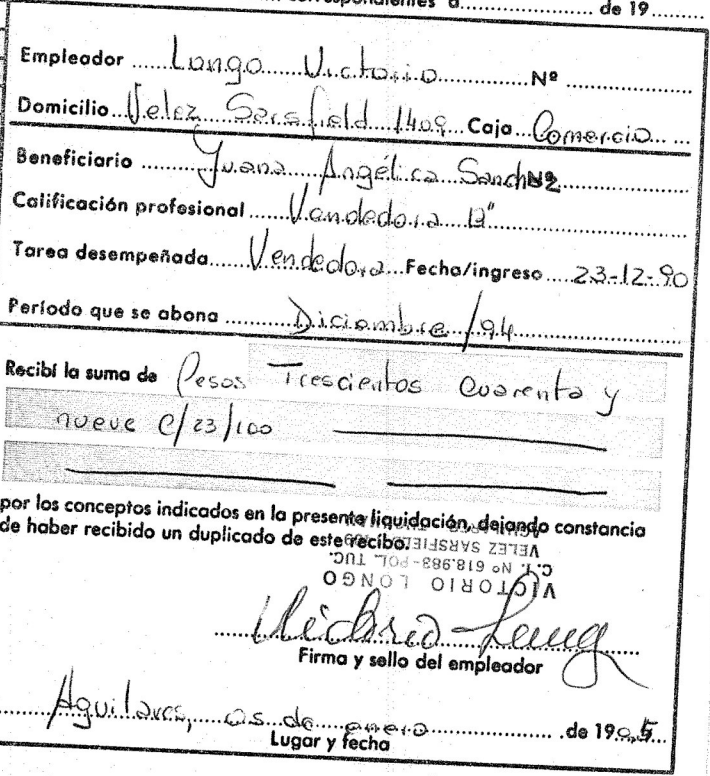 correspondientes a.................... de 19.........
Empleador ......Longo......Victorio...............Nº ....................
Domicilio...Velez Sarsfield 1409...Caja...Comercio......
Beneficiario ..........Juana Angélica Sanchez..................
Calificación profesional ......Vendedora B"...........................
Tarea desempeñada......Vendedora...Fecha/ingreso....23-12-90
Período que se abona ..........Diciembre/94........................
Recibí la suma de Pesos Trescientos Cuarenta y
nueve C/23/100
por los conceptos indicados en la presente liquidación, dejando constancia
de haber recibido un duplicado de este recibo.
VELEZ SARSFIELD 1409
C. I. Nº 618.983-POL. TUC.
VICTORIO LONGO
Victorio Longo
Firma y sello del empleador
Aguilares, 05 de enero .de 1995...
Lugar y fecha